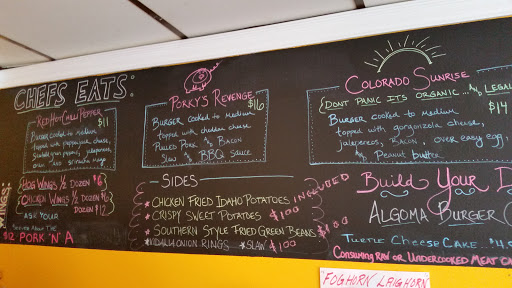 CHEFS EATS:
RED HOT CHILI PEPPER
$11
BURGER cooked to medium
topped with pepperjack cheese,
jalapenos
sriracha mayo
HOG WINGS 1/2 DOZEN $6
CHICKEN WINGS 1/2 DOZEN $6
DOZEN $12
ASK YOUR
SERVER ABOUT THE
$12 PORK 'N' A
WINGS:
PORKY'S REVENGE
$16
BURGER COOKED TO MEDIUM
topped with cheddar cheese
PULLED PORK AND BACON
SLAW AND BBQ SAUCE
SIDES
CHICKEN FRIED IDAHO POTATOES INCLUDED
CRISPY SWEET POTATOES $1.00
SOUTHERN STYLE FRIED GREEN BEANS $1.00
VIDALIA ONION RINGS *SLAW $1.00
COLORADO SUNRISE
{DONT PANIC ITS ORGANIC... AND LEGAL
$14
BURGER cooked to medium
topped with gorgonzola cheese,
jalapenos, BACON, over easy egg,
AND Peanut butter
Build Your
ALGOMA BURGER
TURTLE CHEESE CAKE... $4.
CONSUMING RAW OR UNDERCOOKED MEAT
FOGHORN LAIGHORN